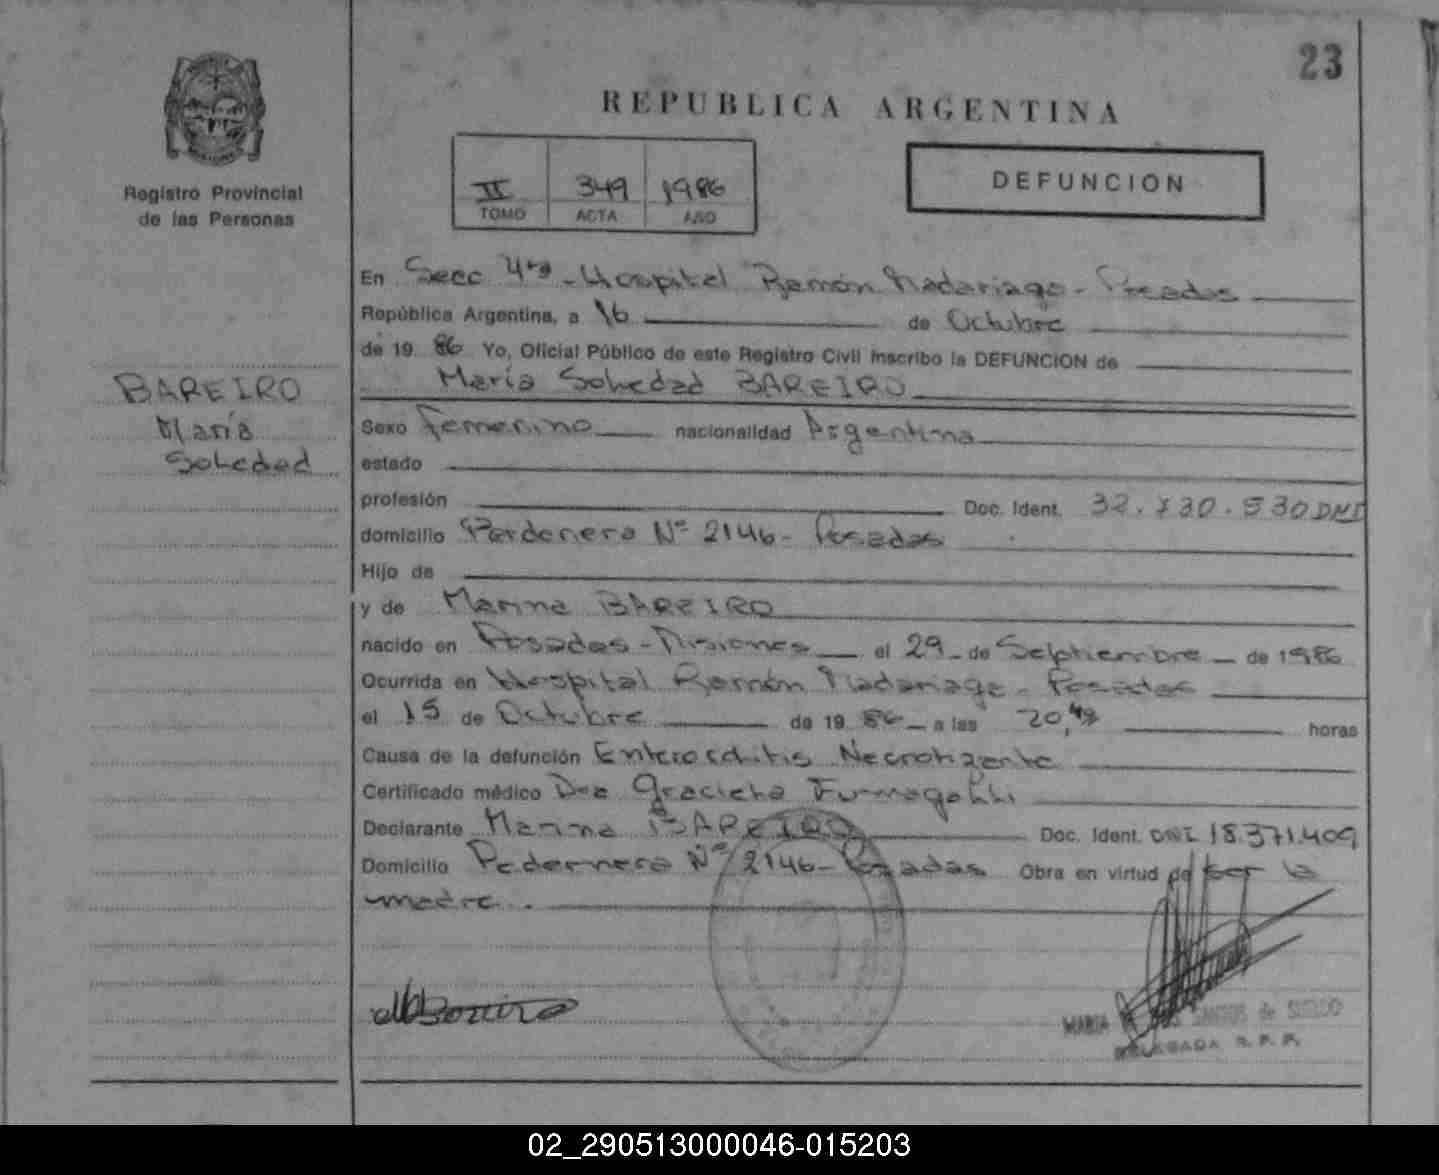 23
REPUBLICA ARGENTINA
Registro Provincial
de las Personas
II 349 1986
TOMO ACTA AÑO
DEFUNCION
BAREIRO
María
Soledad
En Secc 4ta - Hospital Ramón Madariaga - Posadas
República Argentina, a 16 de Octubre
de 19 86 Yo, Oficial Público de este Registro Civil inscribo la DEFUNCION de
María Soledad BAREIRO
Sexo femenino nacionalidad Argentina
estado
profesión Doc. Ident. 32.730.530 DNI
domicilio Perdenera Nº 2146 - Posadas
Hijo de
y de Marina BAREIRO
nacido en Posadas - Misiones el 29 - de Septiembre de 1986
Ocurrida en Hospital Ramón Madariaga - Posadas
el 15 de Octubre de 19 86 a las 20,48 horas
Causa de la defunción Enterocolitis Necrotizante
Certificado médico Dra Graciela Fumagalli
Declarante Marina BAREIRO Doc. Ident. DNI 18.371.409
Domicilio Pedernera Nº 2146 - Posadas Obra en virtud de ser la
madre.
MBareiro
MARIA SANTOS de
DELEGADA R. P. P.
02_290513000046-015203